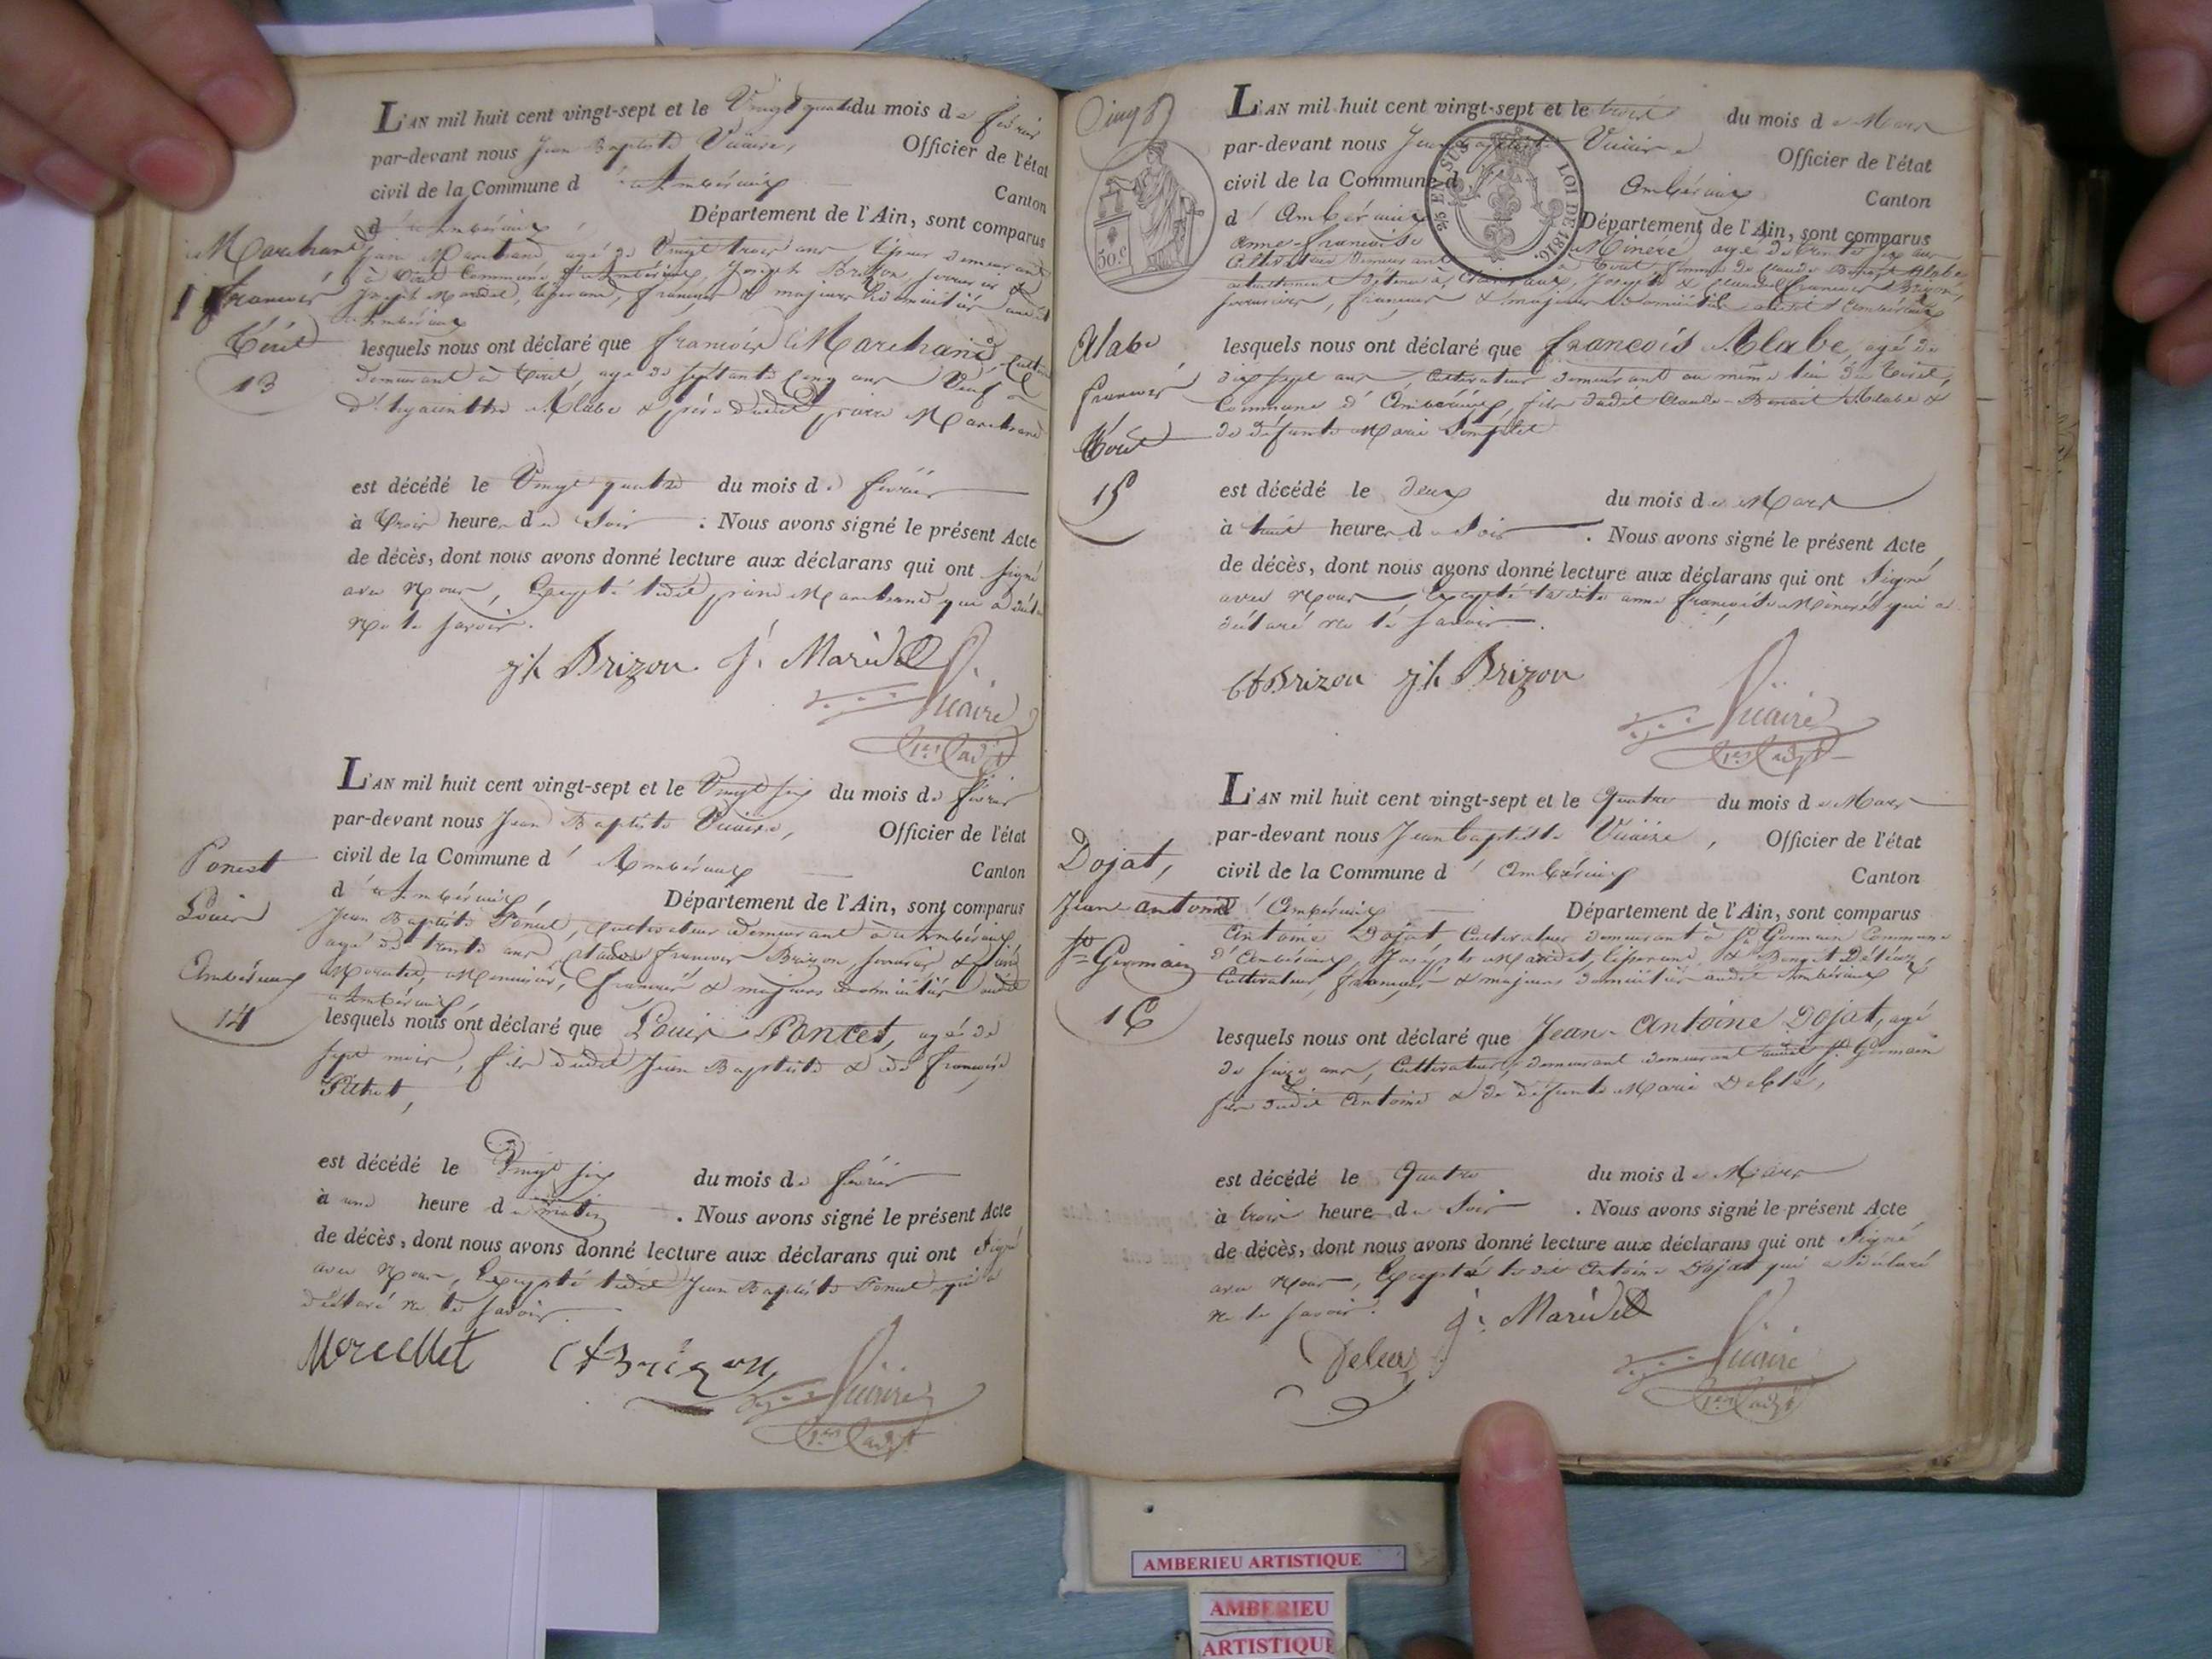 L'AN mil huit cent vingt-sept et le Vingt quatre du mois de février
par-devant nous Jean Baptiste Vicaire, Officier de l'état
civil de la Commune d'Ambérieux Canton
d'Ambérieux, Département de l'Ain, sont comparus
Marchand
françois
Tiret
13
Marchand, agé de Vingt trois ans, demeurant
à Tiret Commune d'Ambérieux, Joseph Brizon, serrurier &
Joseph Maridet, tisserand, français & majeurs domiciliés audit
Ambérieux
lesquels nous ont déclaré que françois Marchand, cultiv.
demeurant à Tiret, agé de septante cinq ans Veuf
d'hyacinthe Alabe & père dudit Marchand
est décédé le Vingt quatre du mois de février
à trois heures du soir. Nous avons signé le présent Acte
de décès, dont nous avons donné lecture aux déclarans qui ont signé
avec Nous, Excepté ledit Marchand qui a déclaré
Ne le savoir.
jh Brizon J. Maridet
Vicaire
1er adjt
L'AN mil huit cent vingt-sept et le Vingt six du mois de février
par-devant nous Jean Baptiste Vicaire, Officier de l'état
civil de la Commune d'Ambérieux Canton
d'Ambérieux, Département de l'Ain, sont comparus
Poncet
Louis
Ambérieux
14
Jean Baptiste Poncet, cultivateur demeurant à Ambérieux,
agé de trente ans, Claude françois Brizon, serrurier &
Menuisier, français & majeurs domiciliés audit
Ambérieux,
lesquels nous ont déclaré que Louis Poncet, agé de
sept mois, fils dudit Jean Baptiste & de françoise
est décédé le Vingt six du mois de février
à une heure du matin. Nous avons signé le présent Acte
de décès, dont nous avons donné lecture aux déclarans qui ont signé
avec Nous, Excepté ledit Jean Baptiste Poncet qui a
déclaré ne le savoir.
Morcellet Cf Brizon
Vicaire
1er adjt
L'AN mil huit cent vingt-sept et le trois du mois de Mars
par-devant nous Jean Baptiste Vicaire Officier de l'état
civil de la Commune d Ambérieux Canton
d'Ambérieux Département de l'Ain, sont comparus
25 EN SUS LOI DE 1816.
50.c
Alabe
françois
Tiret
15
Anne-françoise Mineré agé de trente six ans
Cultivateur demeurant à Tiret femme de Claude Benoit Alabe
actuellement détenu à Clairvaux, Joseph & Claude françois Brizon,
serruriers, français & majeurs domiciliés audit Ambérieux
lesquels nous ont déclaré que françois Alabe, agé de
dix sept ans, Cultivateur demeurant au même lieu de Tiret,
Commune d'Ambérieux, fils dudit Claude-Benoit Alabe &
de défunte Marie
est décédé le deux du mois de Mars
à huit heures du soir. Nous avons signé le présent Acte
de décès, dont nous avons donné lecture aux déclarans qui ont Signé
avec Nous Excepté ladite anne françoise Mineré qui a
déclaré ne le savoir.
Cf Brizon jh Brizon
Vicaire
1er adjt
L'AN mil huit cent vingt-sept et le quatre du mois de Mars
par-devant nous Jean baptiste Vicaire, Officier de l'état
civil de la Commune d'Ambérieux Canton
d'Ambérieux Département de l'Ain, sont comparus
Dojat,
Jean-antoine
St Germain
16
Antoine Dojat, Cultivateur demeurant à St Germain Commune
d'Ambérieux, Joseph Maridet, tisserand, & Benoit
Cultivateur, français & majeurs domiciliés audit Ambérieux
lesquels nous ont déclaré que Jean-Antoine Dojat, agé
de seize ans, Cultivateur, demeurant demeurant audit St Germain
fils dudit Antoine & de défunte Marie
est décédé le quatre du mois de Mars
à trois heures du Soir. Nous avons signé le présent Acte
de décès, dont nous avons donné lecture aux déclarans qui ont Signé
avec Nous, Excepté ledit Antoine Dojat qui a déclaré
ne le savoir.
J. Maridet
Vicaire
1er adjt
AMBERIEU ARTISTIQUE
AMBERIEU
ARTISTIQUE